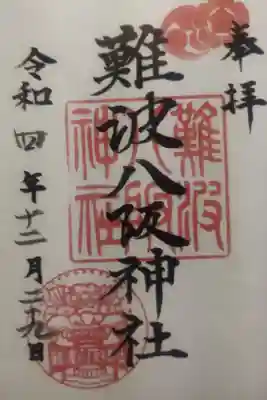 奉拝
難波八阪神社
難波
八阪
神社
令和四年十二月二十九日